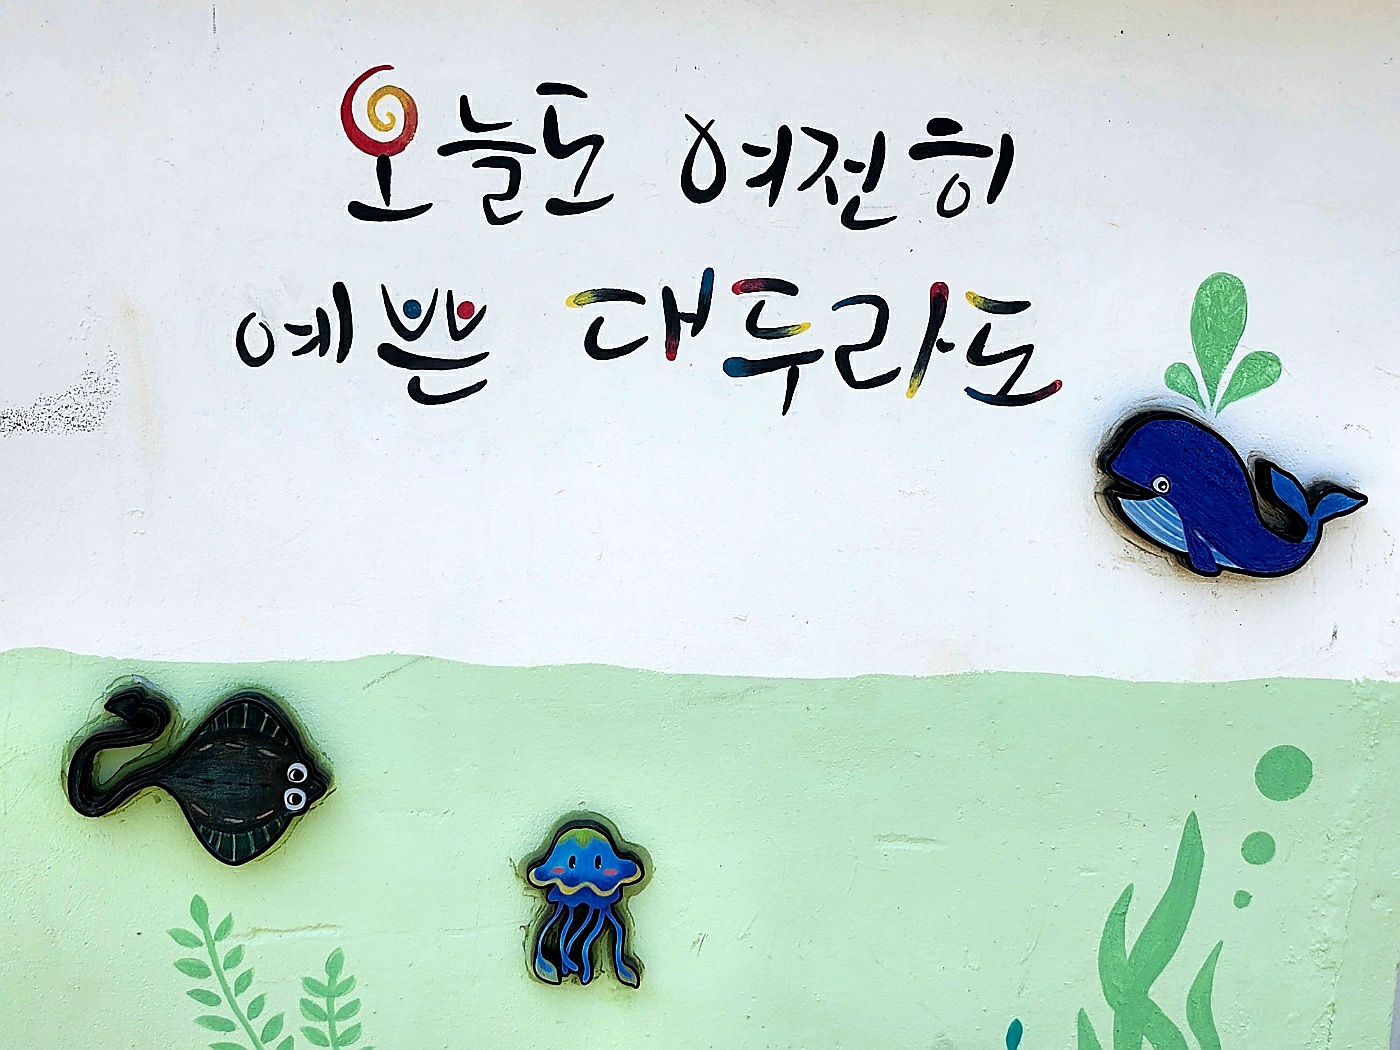 오늘도 여전히
예쁜 대두라도